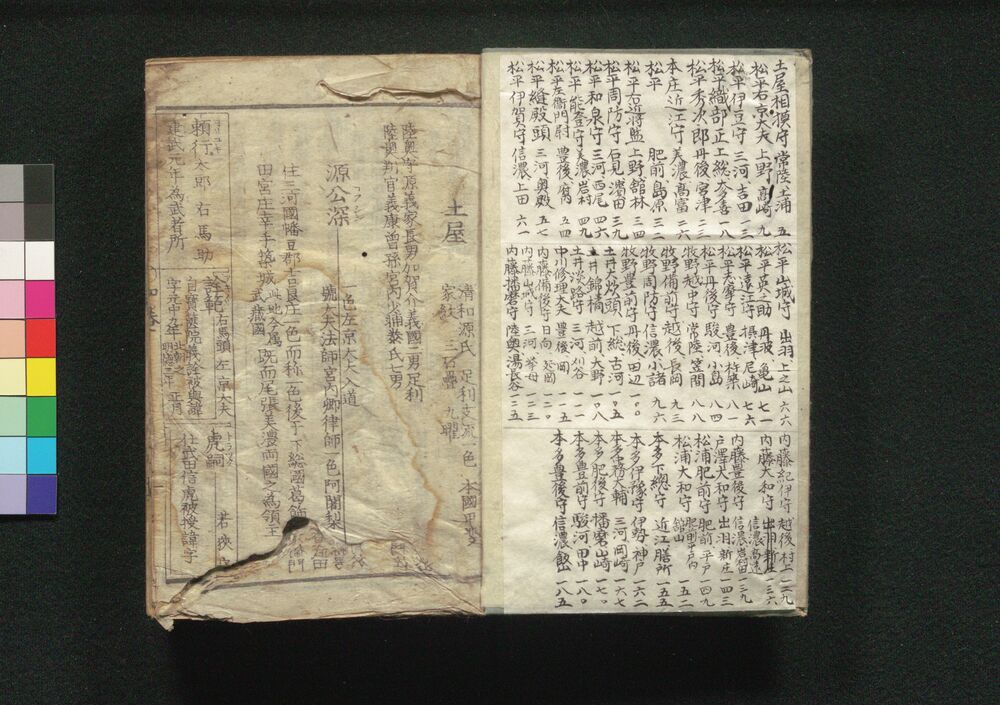 土屋相摸守 常陸土浦 五
松平右京大夫 上野高崎 九
松平伊豆守 三河吉田 一三
松平織部正 上総大多喜 一八
松平秀次郎 丹後宮津 二三
本庄近江守 美濃高富 二六
松平 肥前島原 三二
松平右近將監 上野舘林 三四
松平周防守 石見濱田 三九
松平和泉守 三河西尾 四六
松平能登守 美濃岩村 四九
松平左衞門尉 豊後府内 五五
松平縫殿頭 三河奥殿 五七
松平伊賀守 信濃上田 六一
松平山城守 出羽上之山 六六
松平英之助 丹波亀山 七一
松平遠江守 摂津尼崎 七六
松平大摩守 豊後杵築 八一
松平丹後守 駿河小島 八四
牧野越中守 常陸笠間 八八
牧野備前守 越後長岡 九三
牧野周防守 信濃小諸 九六
牧野豊前守 丹後田辺 一〇〇
土井大炊頭 下総古河 一〇五
土井錦橘 越前大野 一〇八
土井淡路守 三河刈谷 一一一
中川修理大夫 豊後岡 一一五
内藤備後守 日向延岡 一二〇
内藤山城守 三河挙母 一二三
内藤播磨守 陸奥湯長谷 一二五
内藤紀伊守 越後村上 一二九
内藤大和守 信濃高遠 一三六
内藤豊後守 信濃岩村田 一三九
戸澤大和守 出羽新庄 一四三
松浦肥前守 肥前平戸 一四九
松浦大和守 肥前平戸内 舘山 一五二
本多下總守 近江膳所 一五五
本多伊豫守 伊勢神戸 一六二
本多務大輔 三河岡崎 一六七
本多肥後守 播磨山崎 一七〇
本多豊前守 駿河田中 一八〇
本多豊後守 信濃飯山 一八五
土屋
清和源氏 足利支流 一色 本國
家紋 三石疊 九曜
陸奥守源義家長男加賀介義國二男足利
陸奥判官義康曽孫宮内少輔泰氏七男
源公深
一色左京大夫入道
號大夫法師宮内卿律師一色阿闍梨
住三河國幡豆郡吉良庄一色而称一色後于下総國葛飾
田宮庄幸手築城 此地今属武藏國 既而尾張美濃両國之為領主
頼行 太郎 右馬助
建武元年為武者所
詮範 右馬頭 左京大夫
自寳篋院義詮被與諱
字元中九年 北朝之明徳三年 正月
虎嗣 若狭
仕武田信虎被授諱字